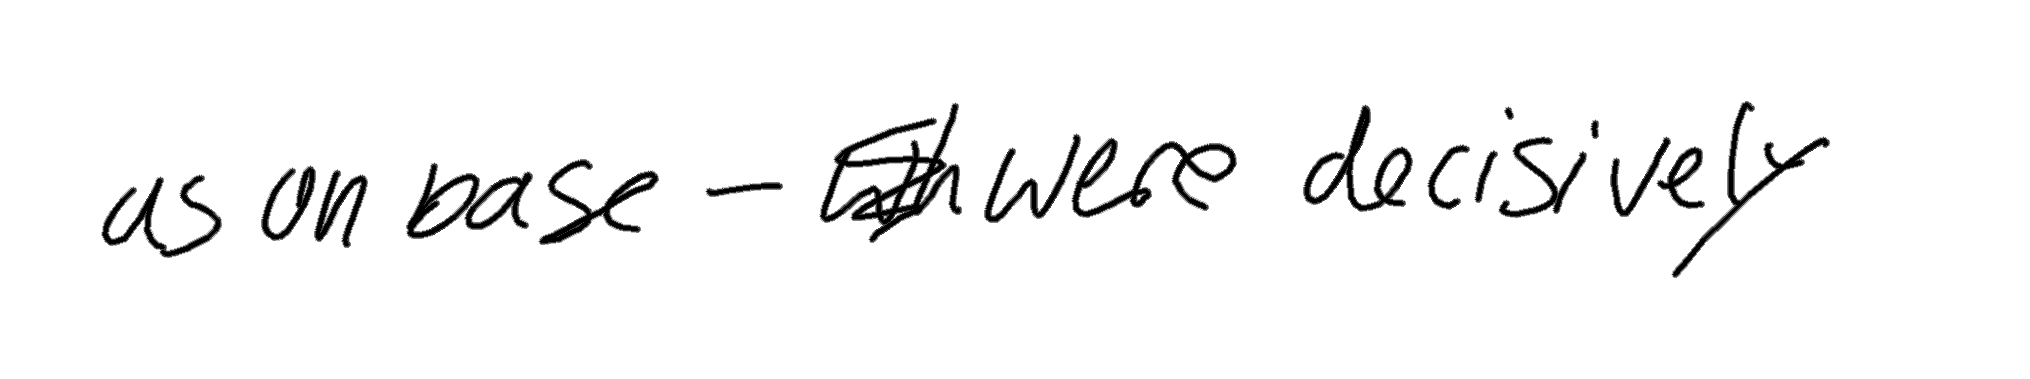 as on base - were decisively